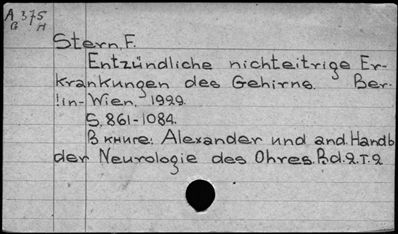 A 375
G H
Stern, F.
Entzündliche nichteitrige Er-
krankungen des Gehirns. Ber-
lin-Wien, 1929.
S. 861-1084.
В книге: Alexander und and. Handb.
der Neurologie des Ohres. Bd. 2. T. 2